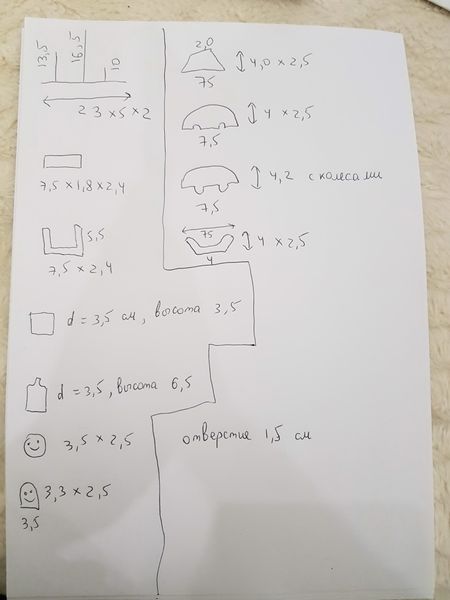 13,5 16,5 10
23 x 5 x 2
7,5 x 1,8 x 2,4
5,5
7,5 x 2,4
d = 3,5 см, высота 3,5
d = 3,5, высота 6,5
3,5 x 2,5
3,3 x 2,5
3,5
2,0
4,0 x 2,5
75
4 x 2,5
7,5
4,2 с колесами
7,5
75
4 x 2,5
4
отверстие 1,5 см